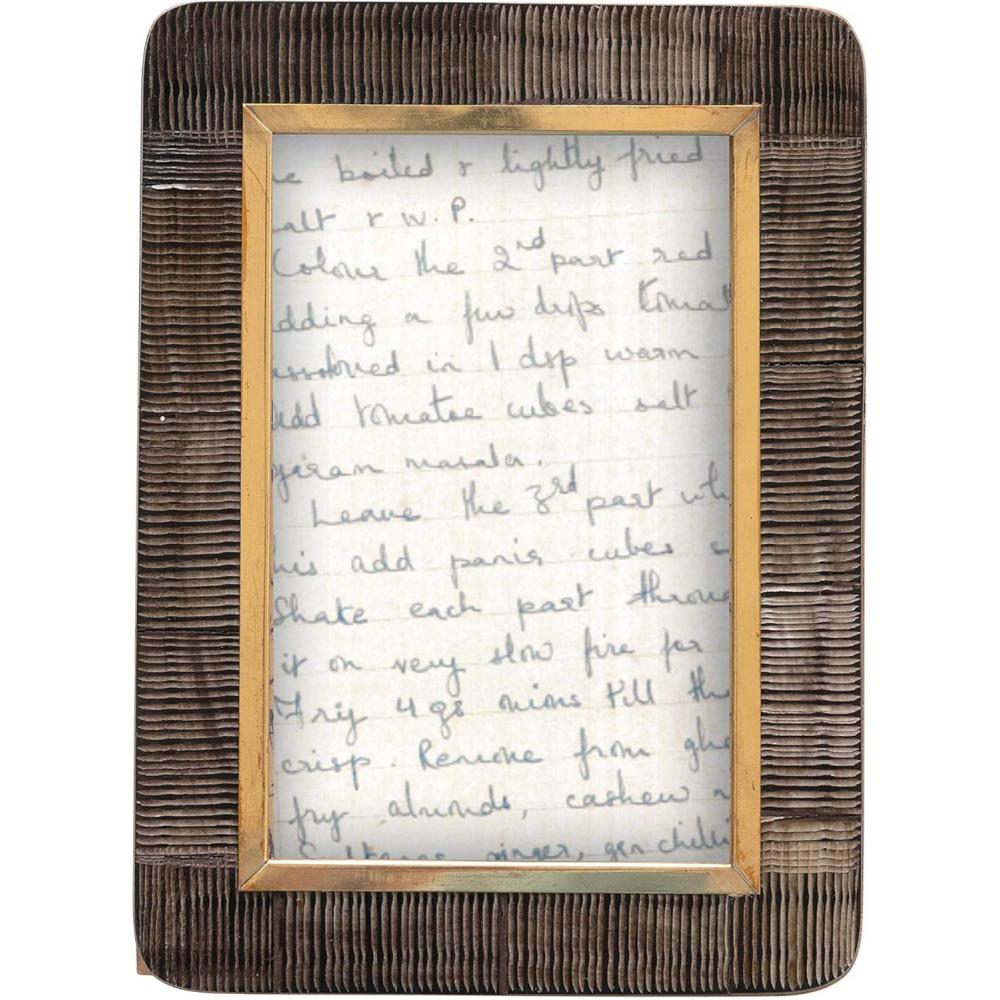 e boiled & lightly fried
alt & W.P.
Colour the 2nd part red
dding a few drps tomat
ssolved in 1 dsp warm
Add tomatoe cubes salt
garam masala.
Leave the 3rd part wh
his add panir cubes
Shake each part throu
it on very slow fire for
Fry 4 gs onions till th
crisp. Remove from ghe
fry almonds, cashew n
Sultanas ginger, grn chilli